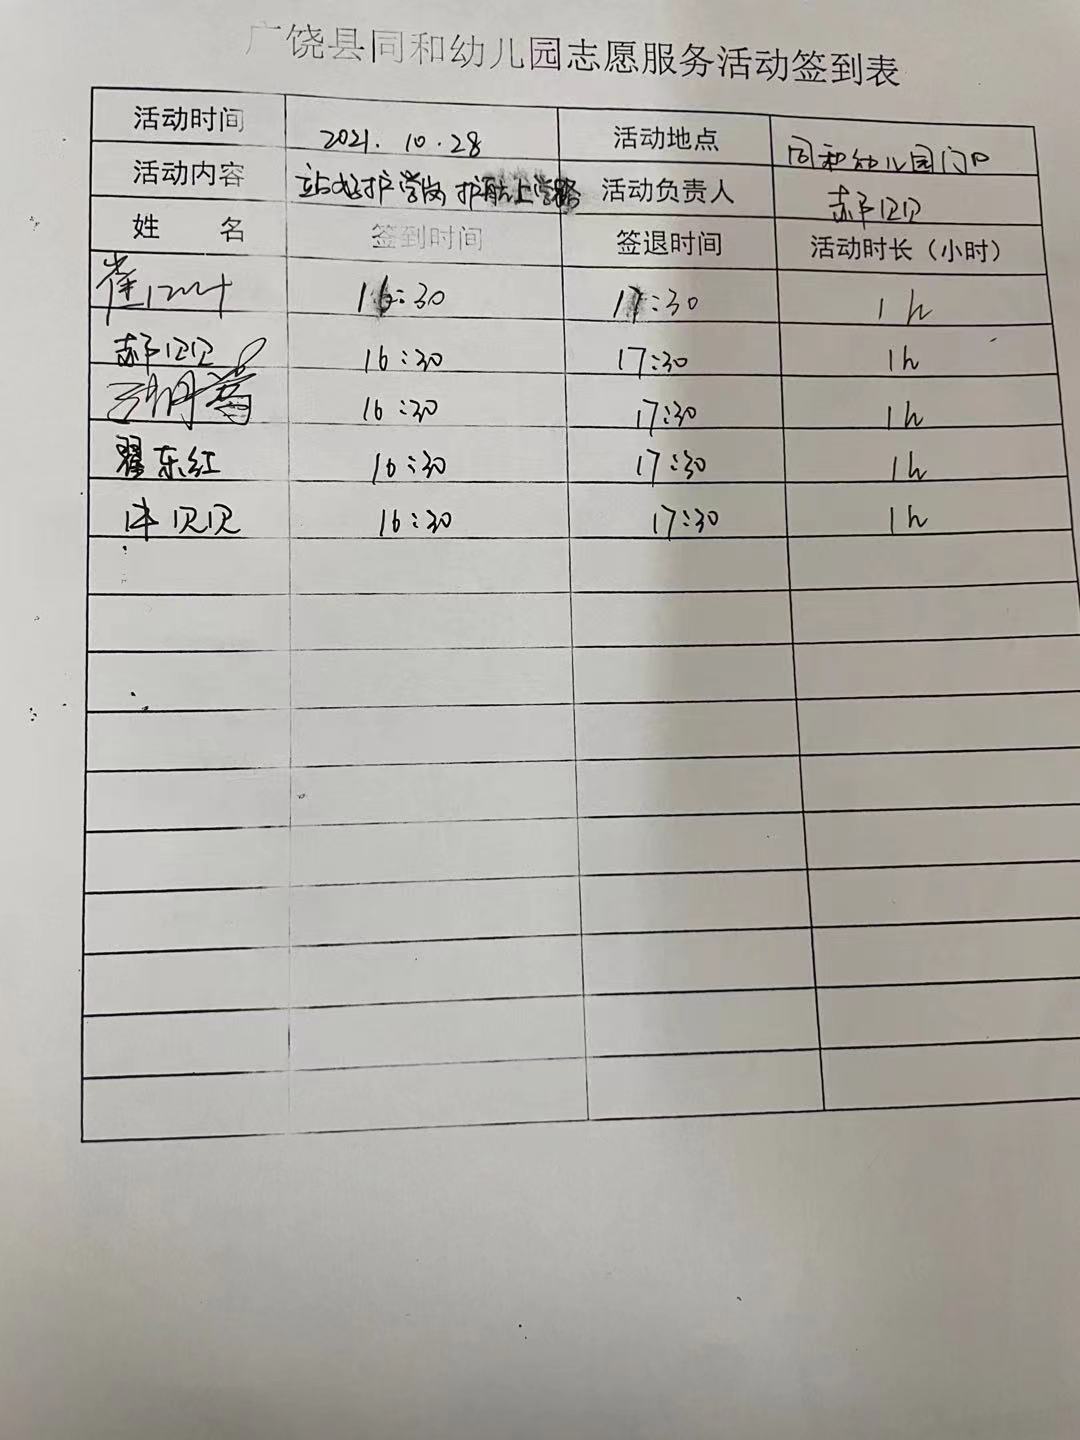 广饶县同和幼儿园志愿服务活动签到表
活动时间 2021.10.28 活动地点 同和幼儿园门口
活动内容 站好护学岗,护航上学路 活动负责人 郝贝贝
姓 名 签到时间 签退时间 活动时长（小时）
崔 16:30 17:30 1h
郝贝贝 16:30 17:30 1h
16:30 17:30 1h
翟东红 16:30 17:30 1h
贝贝 16:30 17:30 1h